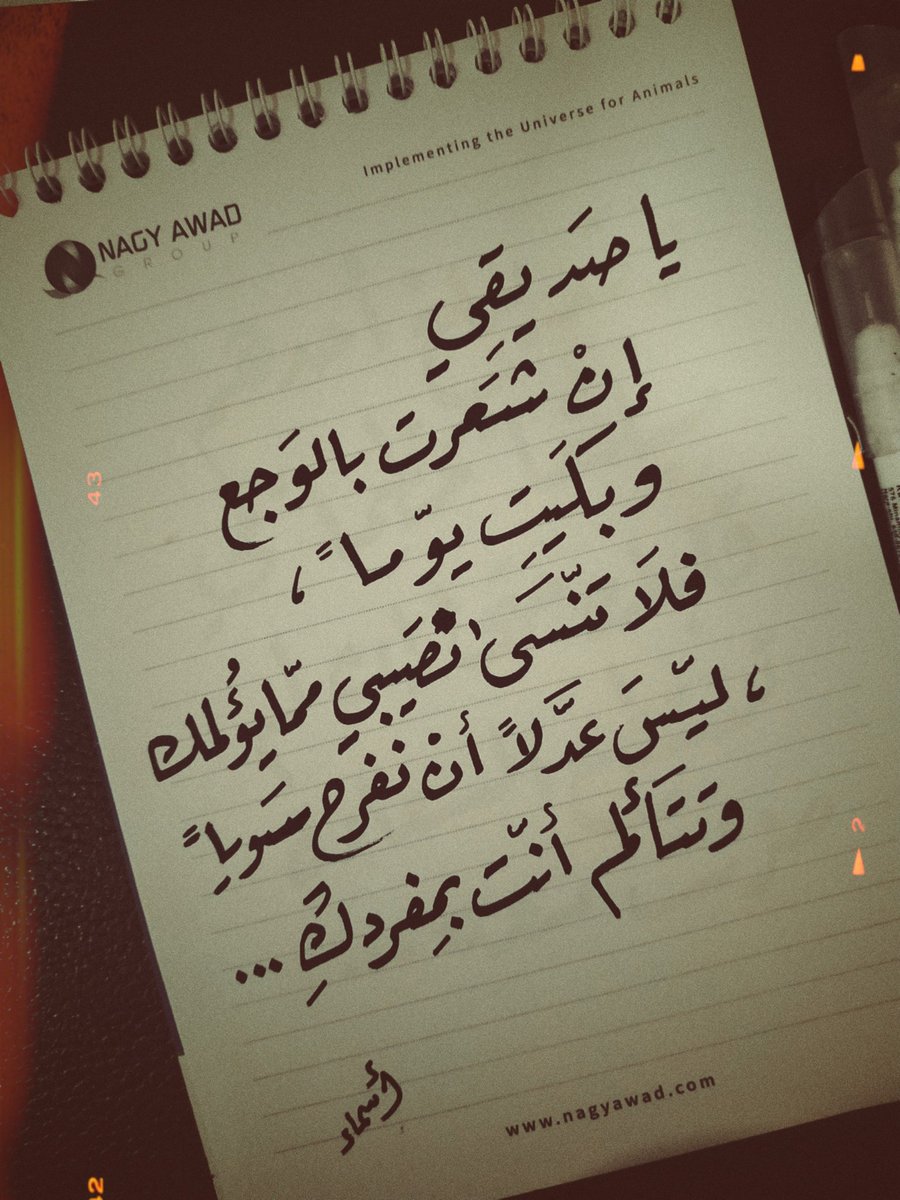 Implementing the Universe for Animals
NAGY AWAD
GROUP
يا صَديقِي
إنْ شَعرتَ بالوَجع
وبكَيتِ يوّماً ،
فلَا تَنّسَى نصَيبي ممّا يؤُلمك
، ليّسَ عدَّلاً أنْ نفرح سَوياً
وتتَألم أنّت بمِفردكِ ...
أسماء
www.nagyawad.com
43
2